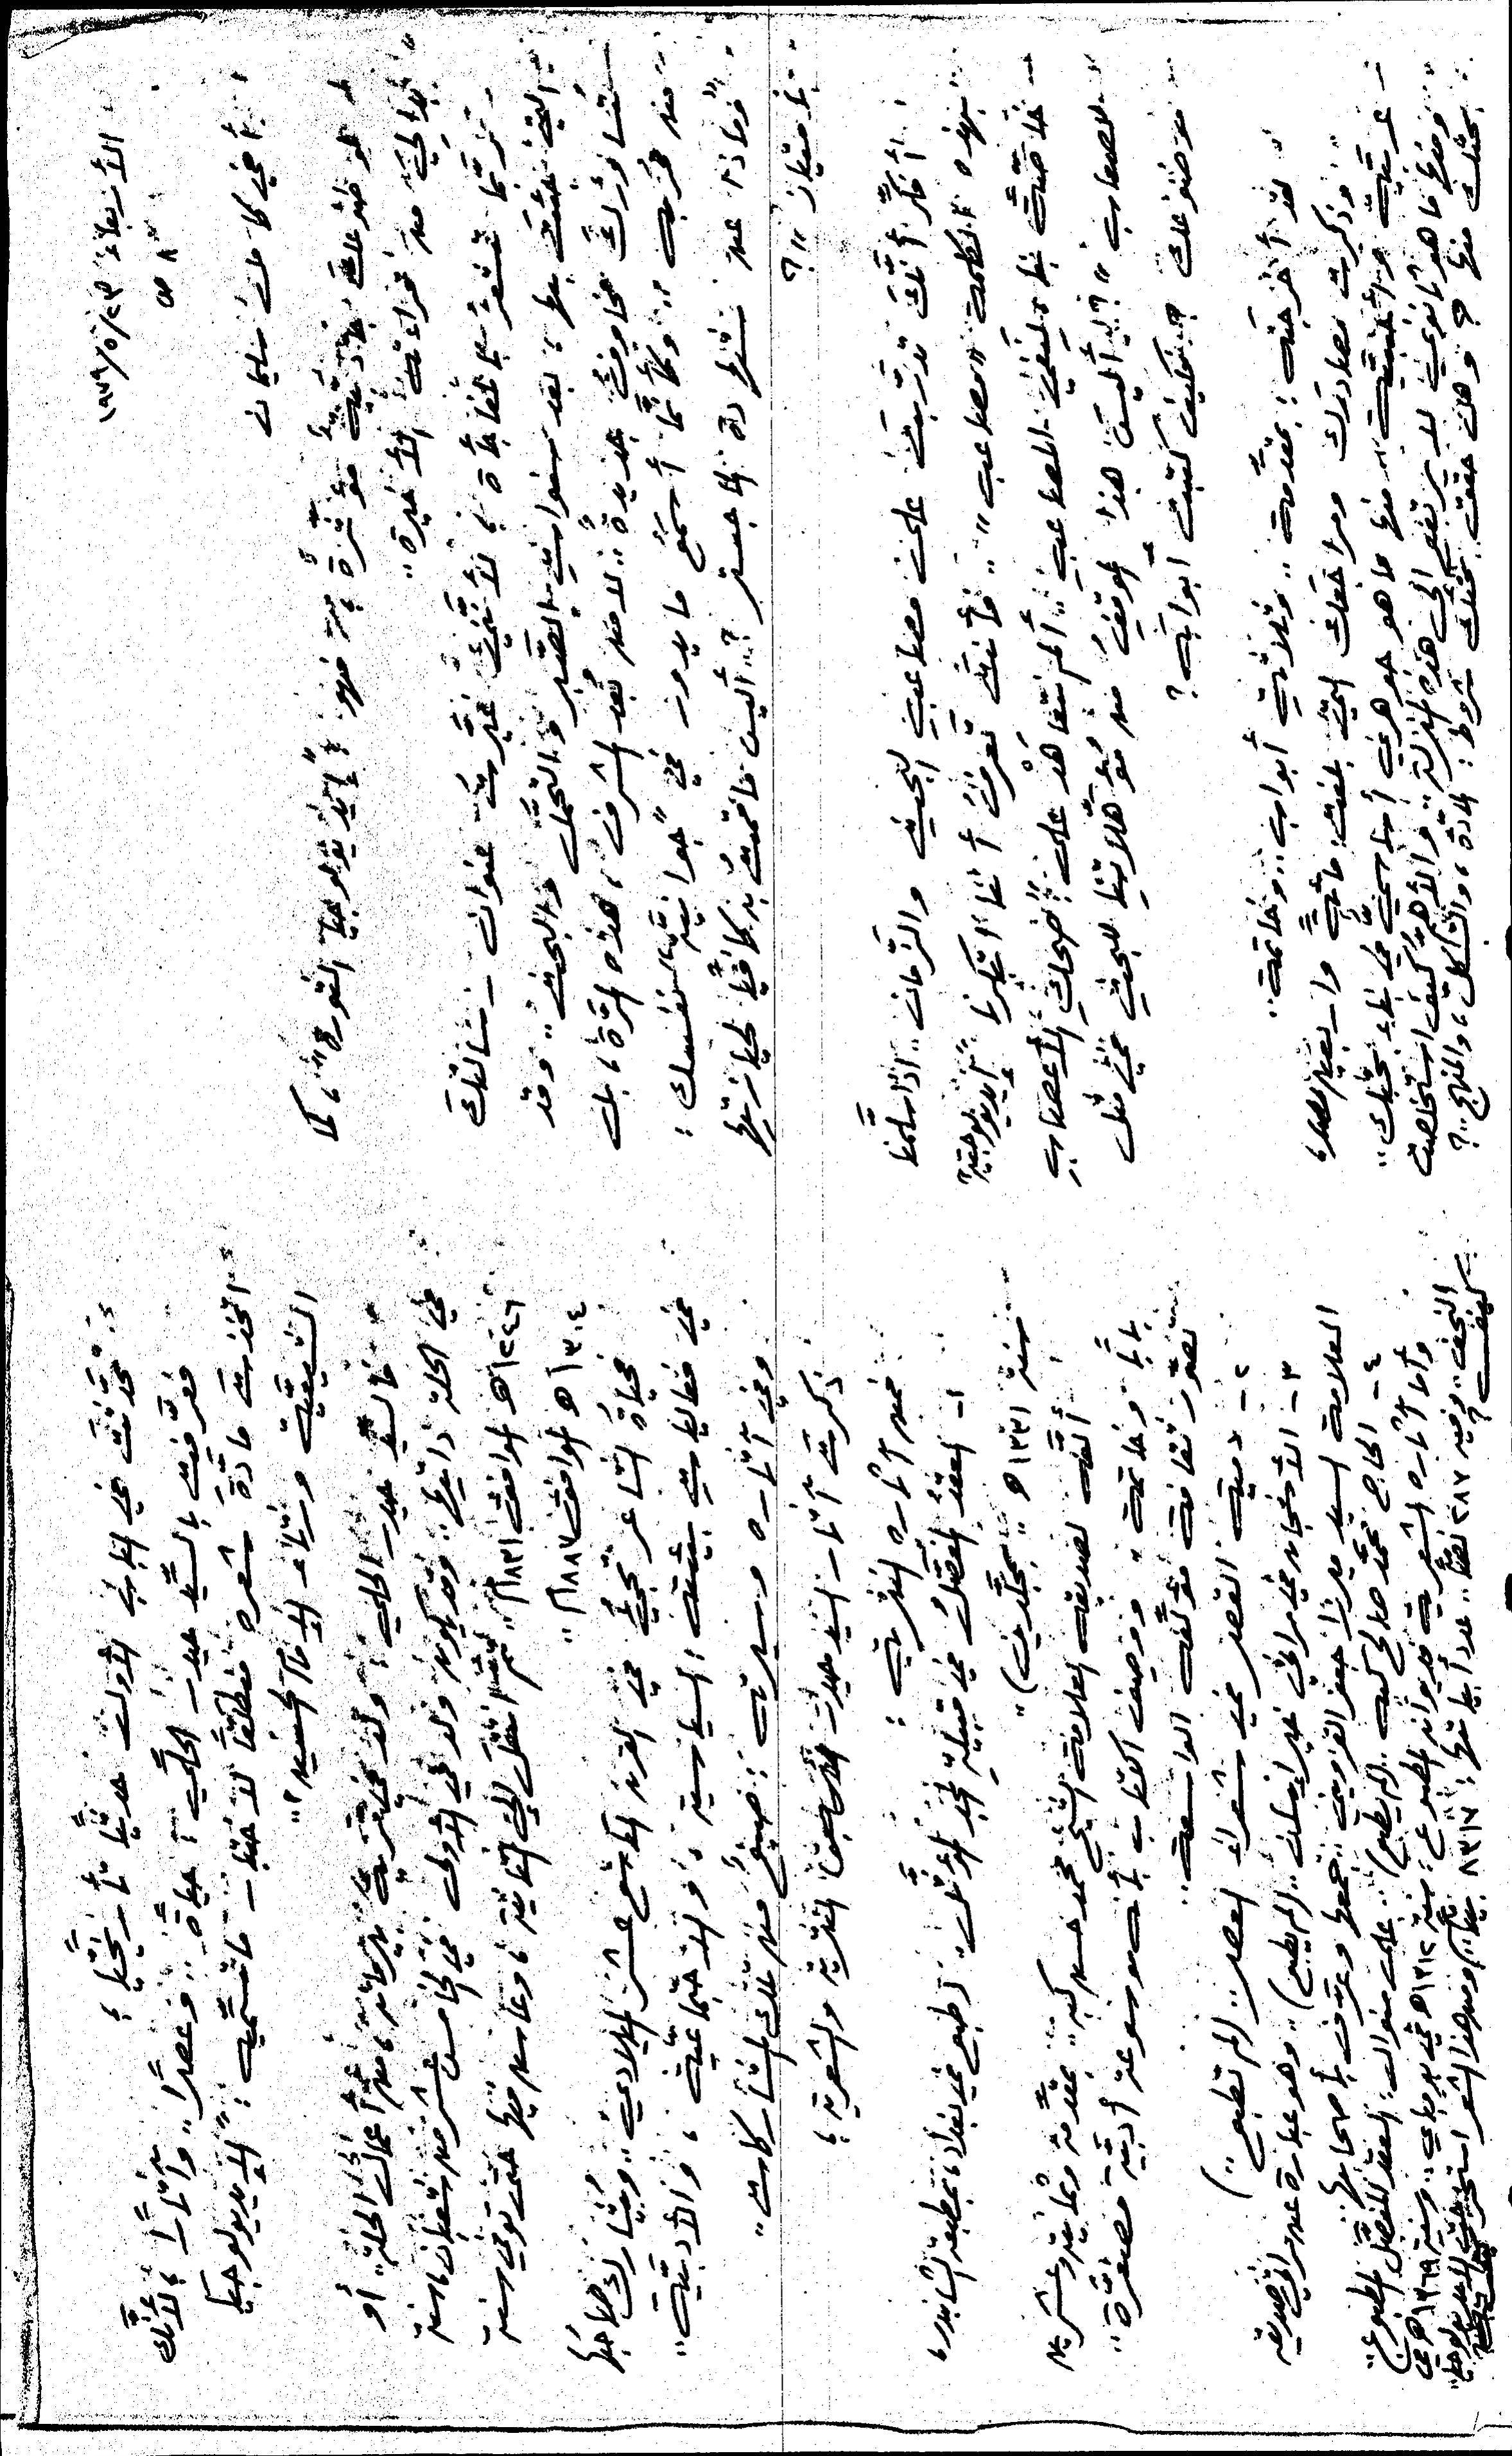 الأربعاء ٢٣/٥/١٩٧٩
ص ٨
أخي كامل سليمان
لموضوعك جاذبيّة مؤثّرة،
قراءته الأخيرة..
وربّما تشعر بالمفاجأة، لأنّني غيّرت عنوان رسالتك
التي بعد سنوات الصّبر والتحمّل والبحث.. وقد
تساورك مخاوف جديدة.. لا من بُعد المشرف، هذه المرّة، بل
من قربه.. وكأنّما أسمع ما يدور في "جوانيّة" نفسك:
وماذا عن نشلي درة الماجستر؟.. أليس ما قمت به كافيًا لحيازتها
بامتياز"؟
أذكر أنّك تدرّبت على مصاعب البحث والزّمان.. إذا سلّمنا
بهذه الكلمة "مصاعب".. فأنت تعرف أننا
خاصّة المصاعب.. ألم نتعاهد على "ضحك الأعصاب
لا صعاب"؟.. أليس هذا الموقف من مؤهّلاتنا للبحث في مثل
موضوعك؟.. فكيف كتبت أبوابه؟
لقد أخرجته: بمقدّمة.. وثلاثة أبواب.. وخاتمة..
وذكرت مصادرك ومراجعك التي بلغت: مائة
عربيّة وأجنبيّة".. منها ما هو جوهريّ أساسيّ في بناء بحثك..
ومنها ما هو ثانويّ لا يرتفع إلى هذه المنزلة.. والأهمّ كيف استخلصت
بحثك منها؟ وهل حقّقت بحثك شروط: المادّة، والشكل، والمنهج..؟
تحدّثت في الباب الأول حديثًا تأريخيًّا؛
فعرّفت بالسّيد حيدر الحلّي: حياة.. وعصرًا.. وآثارًا، لأنّك
اتخذت مادّة شعره منطلقًا لاختبار ما تسمّيه: "الإيديولوجيا
الشيعيّة ورثاء الإمام الحسين"..
فالسّيد حيدر الحلّي: ولد في قرية بيرمانه، من أعمال الحلّة.. أو
في الحلة ذاتها.. وقد يكون ولد في الأولى في الخامس عشر من شعبان، سنة
١٢٤٦هـ الموافق ١٨٣١م.. ثم انتقل إلى الثانية، وعاش فيها حتى توفي سنة
١٣٠٤هـ الموافق ١٨٨٧م..
فحياة الشاعر تجري في القرن التاسع عشر الميلادي.. ويشارك صاحبها
في فعاليات بيئته: السياسيّة، والاجتماعيّة، والأدبيّة..
وفي آثاره وسيرته: صيغ من تلك المشاركات..
ذكرت آثار السيد حيدر الحلّي النثرية والشعرية؛
فمن آثاره النثرية:
١- العقد المفصّل في قبيلة المجد المؤثّل.. (طبع في بغداد، بمطبعة الشابندر،
سنة ١٣٣١هـ.. بمجلّدين)..
ألّفه لصديقه العلامة الشيخ محمد حسن كبه.. بمقدّمة وثمانية وعشرين
بابًا.. وخاتمة.. ووصف الكتاب بأنه موسوعة أدبيّة مصغّرة..
تصوّر ثقافة مؤلّفه الواسعة..
٢- دمية القصر في شعراء العصر.. (لم تطبع..)
٣- الأشجان في مراثي خير إنسان.. (لم يطبع).. وهو عبارة عن مراثي صديقه
العلامة السيد ميرزا جعفر القزويني.. جمعها وعرّف بأصحابها..
٤- الحاج محمد صالح كبه.. (لم يطبع).. على منوال: العقد المفصّل المطبوع..
وأما آثاره الشعرية ديوانه المطبوع: سنة ١٣١٢هـ في بومباي.. وسنة ١٣٦٩هـ في
النجف.. وفيه ٢٨٧ نصًّا.. عدد أبياتها: ٨٣١٧ بيتًا.. ومن هذا الشعر استخرجت الإيديولوجيا..
كيف؟